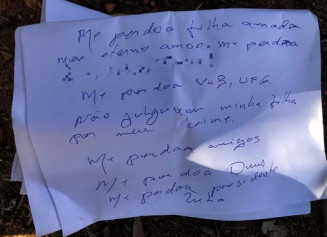 Me perdoa filha amada
meu eterno amor. me perdoa
Me perdoa VoB, UFG
Não julguem minha filha
por meu crime.
Me perdoa amigos
Me perdoa Deus
Me perdoa presidente
Lula